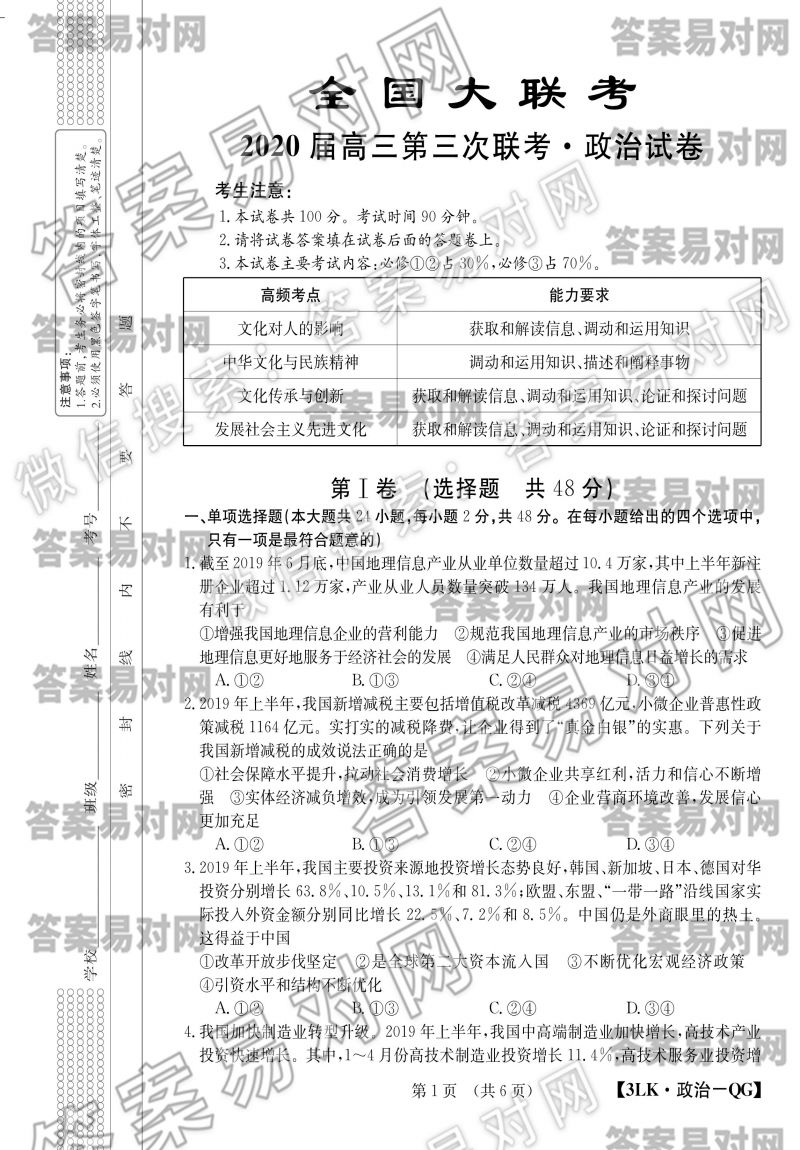 全国大联考
2020 届高三第三次联考·政治试卷
考生注意:
1.本试卷共 100 分。考试时间 90 分钟。
2.请将试卷答案填在试卷后面的答题卷上。
3.本试卷主要考试内容:必修①②占 30%,必修③占 70%。
高频考点 能力要求
文化对人的影响 获取和解读信息、调动和运用知识
中华文化与民族精神 调动和运用知识、描述和阐释事物
文化传承与创新 获取和解读信息、调动和运用知识、论证和探讨问题
发展社会主义先进文化 获取和解读信息、调动和运用知识、论证和探讨问题
第Ⅰ卷 (选择题 共 48 分)
一、单项选择题(本大题共 24 小题,每小题 2 分,共 48 分。在每小题给出的四个选项中,
只有一项是最符合题意的)
1.截至 2019 年 6 月底,中国地理信息产业从业单位数量超过 10.4 万家,其中上半年新注
册企业超过 1.12 万家,产业从业人员数量突破 134 万人。我国地理信息产业的发展
有利于
①增强我国地理信息企业的营利能力 ②规范我国地理信息产业的市场秩序 ③促进
地理信息更好地服务于经济社会的发展 ④满足人民群众对地理信息日益增长的需求
A.①② B.①③ C.②④ D.③④
2.2019 年上半年,我国新增减税主要包括增值税改革减税 4369 亿元,小微企业普惠性政
策减税 1164 亿元。实打实的减税降费,让企业得到了“真金白银”的实惠。下列关于
我国新增减税的成效说法正确的是
①社会保障水平提升,拉动社会消费增长 ②小微企业共享红利,活力和信心不断增
强 ③实体经济减负增效,成为引领发展第一动力 ④企业营商环境改善,发展信心
更加充足
A.①② B.①③ C.②④ D.③④
3.2019 年上半年,我国主要投资来源地投资增长态势良好,韩国、新加坡、日本、德国对华
投资分别增长 63.8%、10.5%、13.1%和 81.3%;欧盟、东盟、“一带一路”沿线国家实
际投入外资金额分别同比增长 22.5%、7.2%和 8.5%。中国仍是外商眼里的热土。
这得益于中国
①改革开放步伐坚定 ②是全球第二大资本流入国 ③不断优化宏观经济政策
④引资水平和结构不断优化
A.①② B.①③ C.②④ D.③④
4.我国加快制造业转型升级。2019 年上半年,我国中高端制造业加快增长,高技术产业
投资快速增长。其中,1~4 月份高技术制造业投资增长 11.4%,高技术服务业投资增
第 1 页 (共 6 页)
【3LK·政治一QG】
注意事项:
1.答题前,考生务必将密封线内的项目填写清楚。
2.必须使用黑色签字笔书写,字体工整、笔迹清楚。
学校 班级 姓名 考号
密 封 线 内 不 要 答 题
答案易对网
微信搜索:答案易对网